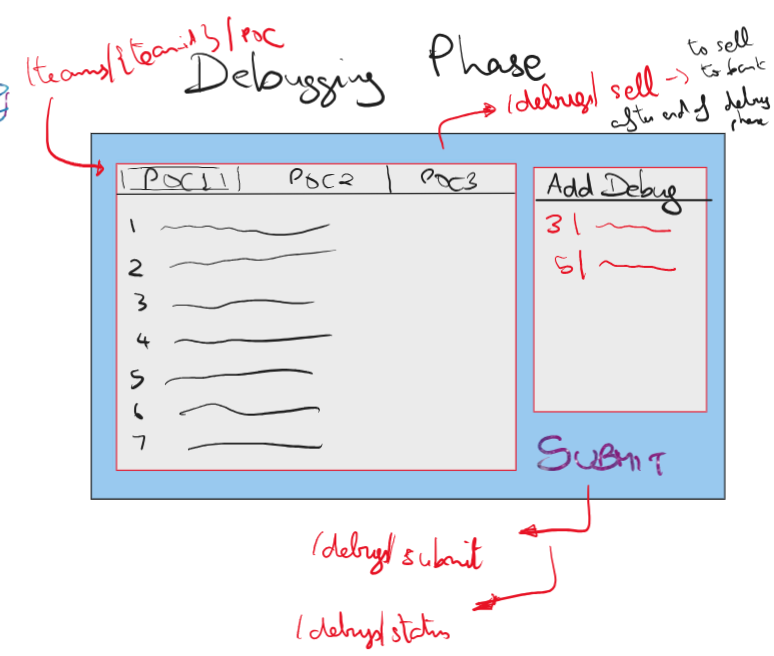 /teams/{teamid}/POC
Debugging Phase
/debugs/sell → to sell
to bank
after end of debug
phase
POC1 | POC2 | POC3
1
2
3
4
5
6
7
Add Debug
3|
5|
SUBMIT
/debugs/submit
/debugs/status